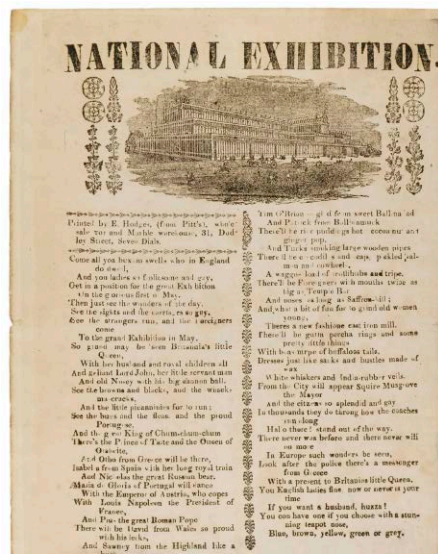 NATIONAL EXHIBITION.
Printed by E. Hodges, (from Pitt's), whole
sale Toy and Marble warehouse, 31, Dud
ley Street, Seven Dials.
Come all you beaux swells who in England
do dwell,
And you ladies so frolicsome and gay,
Get in a position for the great Exhibition
On the glorious first of May.
Then just see the wonders of the day.
See the sights and the as gay,
See the strangers run, and the foreigners
come
To the grand Exhibition in May.
So grand may be seen Britannia's little
Queen,
With her husband and royal children all
And gallant Lord John, her little servant man
And old Nosey with his big cannon ball.
See the browns and blacks, and the
ma cracks,
And the little picaninnies far to run;
See the bucks and the and the proud
Portugese,
And the great King of Chum-chum-chum
There's the Prince of Taste and the Queen of
Otaheite,
And Otho from Greece will be there,
Isabella from Spain with her long royal train
And Nicholas the great Russian bear.
Maria do Gloria of Portugal will dance
With the Emperor of Austria, who copes
With Louis Napoleon the President of
France,
And Pius the great Roman Pope
There will be David from Wales so proud
with his leeks,
And Sawney from the Highland like a
Tim O'Brian from sweet Ballina ad
And Patrick from
There'll be rice puddings hot and
ginger pop,
And Turks smoking large wooden pipes
There'll be and cap, pickled sal-
mon and
A waggon load of and tripe.
There'll be Foreigners with mouths twice as
big as Temple Bar
And noses as long as
And what a bit of fun for to grind old women
young,
Theres a new fashion cast iron mill.
There'll be gutta percha rings and some
pretty little things
With of buffaloes tails.
Dresses just like sacks and bustles made of
wax
White whiskers and India-rubber veils.
From the City will appear Squire Musgrove
the Mayor
And the citizens so splendid and gay
In thousands they do throng how the coaches
run along
Hallo there! stand out of the way.
There never was before and there never will
be more
In Europe such wonders be seen,
Look after the police there's a messenger
from Greece
With a present to Britanias little Queen.
You English ladies fine now or never is your
time
If you want a husband, huzza!
You can have one if you choose with a stun-
ning teapot nose,
Blue, brown, yellow, green or grey.